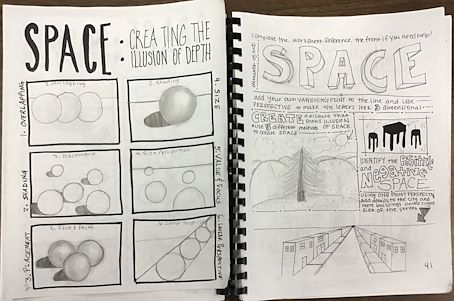 SPACE:
CREATING THE
ILLUSION OF DEPTH
1. OVERLAPPING
4. SIZE
1. Overlapping
2. Shading
2. SHADING
5. VALUE & FOCUS
3. Placement
4. Size/Proportion
3. PLACEMENT
6. LINEAR PERSPECTIVE
5. Value & Focus
6. Linear Perspective
Complete the worksheet. Reference the front if you need help!
elements of art:
SPACE
add your own VANISHING POINT to the line and use
PERSPECTIVE to make the letters look 3 dimensional.
CREATE a picture that
shows ILLUSION
use 3 different methods of SPACE
to create SPACE
IDENTIFY the Positive
and
Negative
SPACE
Using ONE POINT PERSPECTIVE
add details to the city and
more buildings on the right
side of the street
41